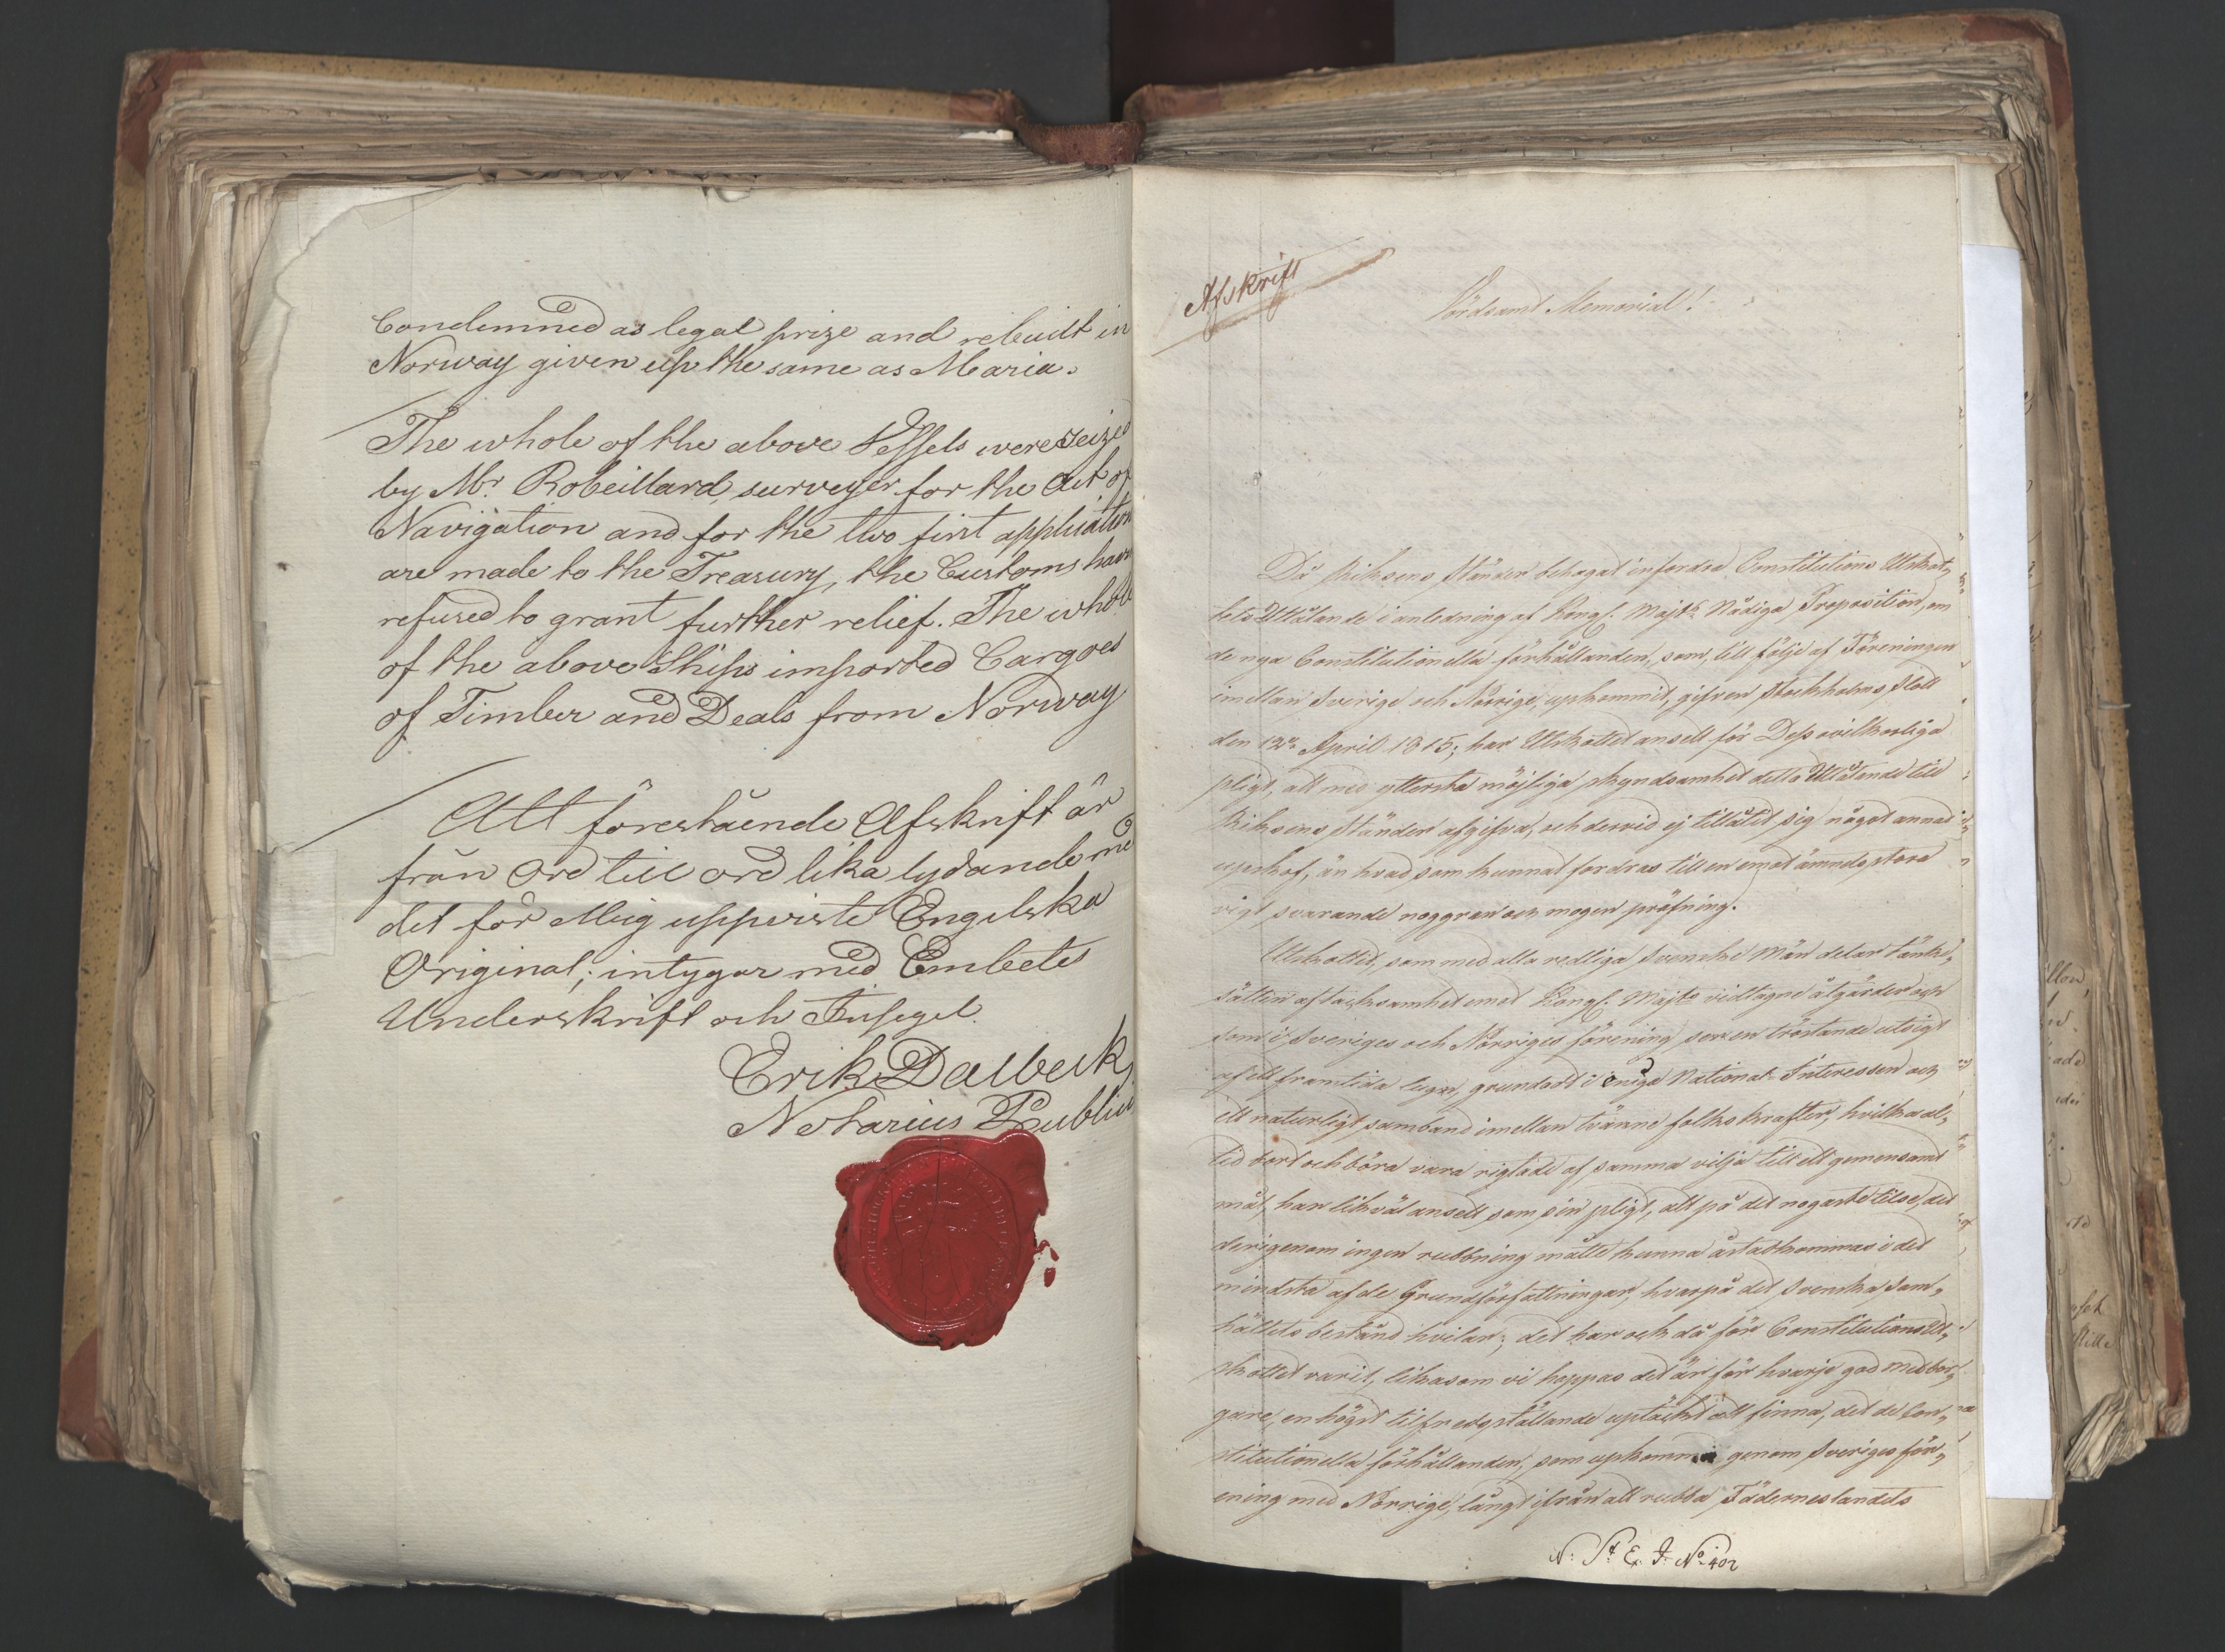 Condemned as legal prize and rebuilt in
Norway given up the same as Maria.
The whole of the above Vessels were seized
by Mr. Robeillard, surveyer for the Act of
Navigation and for the two first application
are made to the Treasury, the Customs have
refused to grant further relief. The whole
of the above Ships imported Cargoes
of Timber and Deals from Norway
Att förestående Afskrift är
från Ord till ord lika lydande med
det för Mig uppviste Engelska
Original; intygar med Embetes
Underskrift och Insegel.
Erik Dalbeck
Notarius Publicus
Afskrift
Vördsamt Memorial!
Då Riksens Ständer behagat infordra Constitutions Utskot-
tets Utlåtande i anledning af Kongl. Majts Nådiga Proposition, om
de nya Constitutionella förhållanden, som, till följe af Föreningen
imellan Sverige och Norrige, uppkommit, gifven Stockholms Slott
den 12te April 1815; har Utskottet ansett för Dess ovilkorliga
pligt, att med yttersta möjliga skyndsamhet detta Utlåtande till
Riksens Ständer afgifva, och dervid ej tillåtit sig något annat
uppskof, än hvad som kunnat fordras till en emot ämnets stora
vigt svarande noggran och mogen pröfning.
Utskottet, som med alla redliga Svenske Män delar tänke-
sätten af tacksamhet emot Kongl. Majts vidtagne åtgärder och
som i Sveriges och Norriges förening ser en tröstande utsigt
af ett framtida lugn, grundadt i eniga National-Interessen och
ett naturligt samband imellan tvänne folks krafter, hvilka al-
tid bort och böra vara rigtade af samma vilja till ett gemensamt
mål, har likväl ansett som sin pligt, att på det nogaste tilse, det
derigenom ingen rubbning måtte kunna åstadkommas i det
mindsta af de Grundförfattningar, hvarpå det Svenska Sam-
hällets bestånd hvilar; det har ock då för Constitutions Ut-
skottet varit, likasom vi hoppas det är för hvarje god medbor-
gare, en högst tilfredsställande uptäckt att finna, det de Con-
stitutionella förhållanden, som uppkommit genom Sveriges för-
ening med Norrige, långt ifrån att rubba Fäderneslandets
N: St. E. I. No. 402